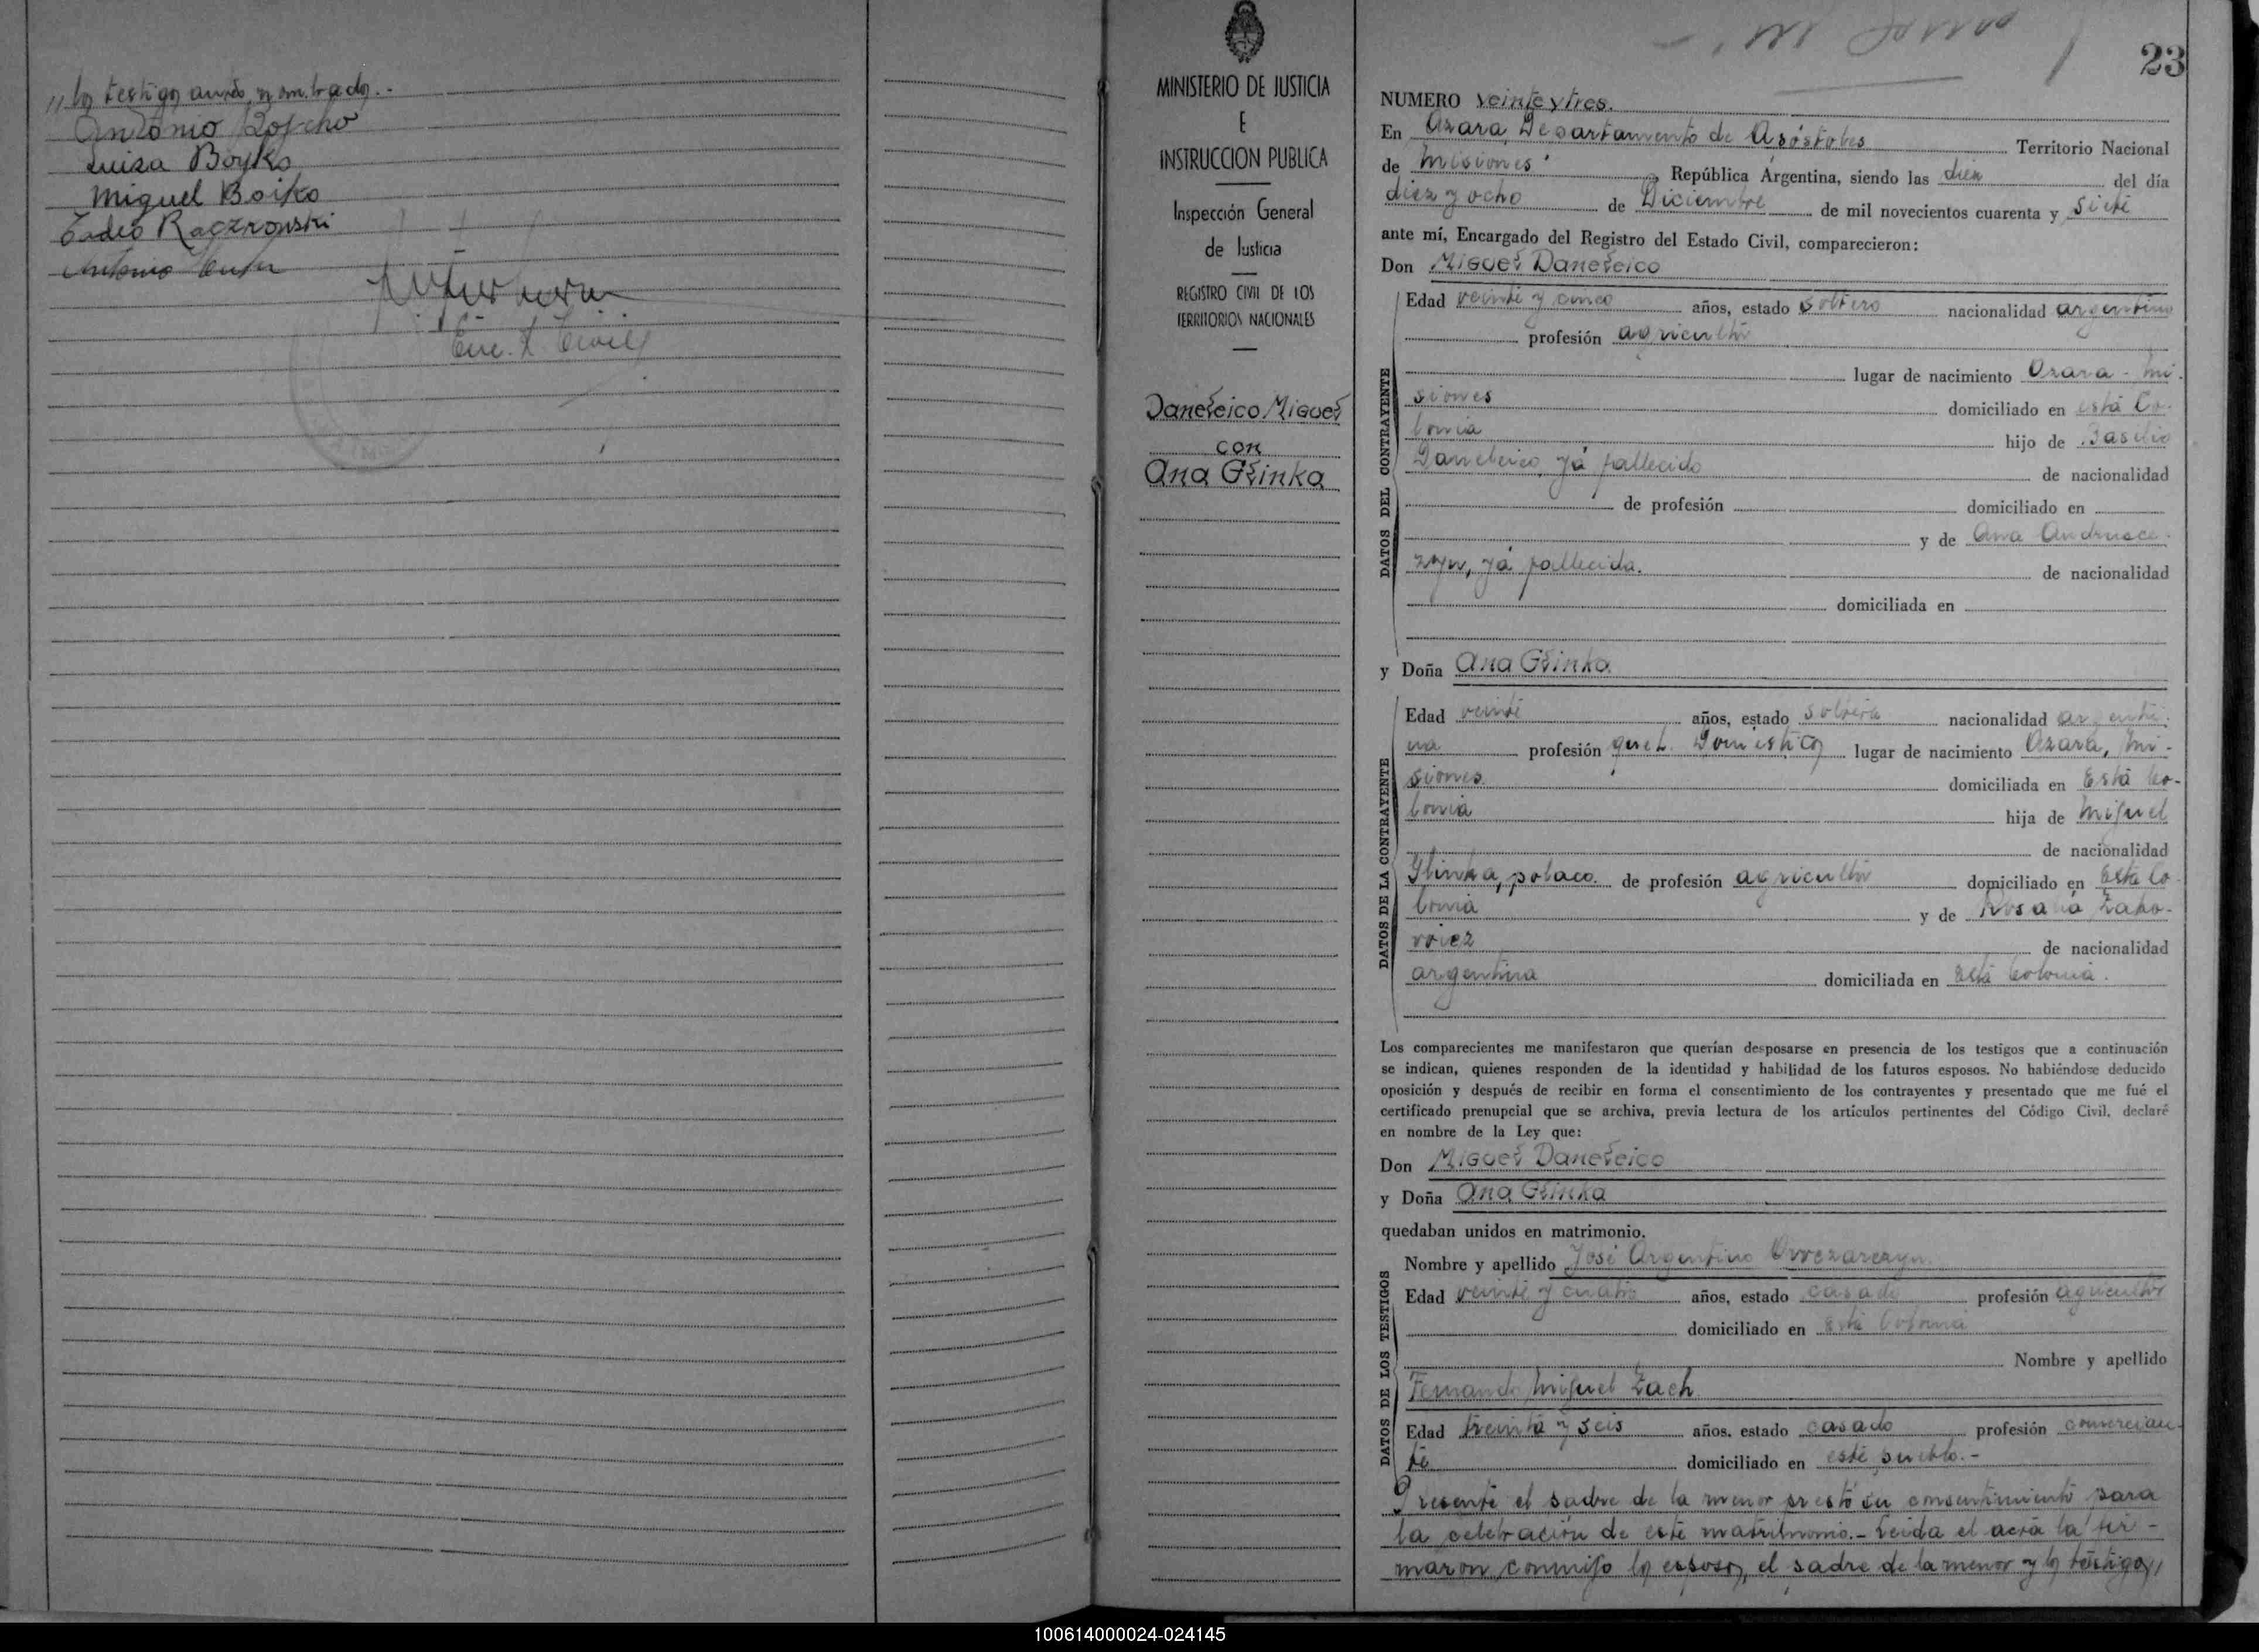 // los testigos arriba nombrados.-
Antonio
Luisa Boyko
Miguel Boiko
Tadeo Raczkowski
Antonio
Enc. R. Civil
MINISTERIO DE JUSTICIA
E
INSTRUCCION PUBLICA
Inspección General
de Justicia
REGISTRO CIVIL DE LOS
TERRITORIOS NACIONALES
Daneleico Miguel
con
Ana Glinka
23
NUMERO veinte y tres.
En Azara, Departamento de Apóstoles Territorio Nacional
de Misiones República Argentina, siendo las diez del día
diez y ocho de Diciembre de mil novecientos cuarenta y siete
ante mí, Encargado del Registro del Estado Civil, comparecieron:
Don Miguel Daneleico
DATOS DEL CONTRAYENTE
Edad veinte y cinco años, estado soltero nacionalidad argentino
profesión agricultor
lugar de nacimiento Azara - Mi-
siones domiciliado en está Co-
lonia hijo de Basilio
Daneleico, yá fallecido de nacionalidad
de profesión domiciliado en
y de Ana Andrusce-
zyn, yá fallecida. de nacionalidad
domiciliada en
y Doña Ana Glinka
DATOS DE LA CONTRAYENTE
Edad veinte años, estado soltera nacionalidad argenti-
na profesión queh. Domésticos lugar de nacimiento Azara, Mi-
siones domiciliada en Está Co-
lonia hija de Miguel
de nacionalidad
Glinka, polaco. de profesión agricultor domiciliado en Está Co-
lonia y de Rosalia Zaho-
roiez de nacionalidad
argentina domiciliada en Está Colonia.
Los comparecientes me manifestaron que querían desposarse en presencia de los testigos que a continuación
se indican, quienes responden de la identidad y habilidad de los futuros esposos. No habiéndose deducido
oposición y después de recibir en forma el consentimiento de los contrayentes y presentado que me fué el
certificado prenupcial que se archiva, previa lectura de los artículos pertinentes del Código Civil, declaré
en nombre de la Ley que:
Don Miguel Daneleico
y Doña Ana Glinka
quedaban unidos en matrimonio.
DATOS DE LOS TESTIGOS
Nombre y apellido José Argentino Owczarczyn
Edad veinte y cuatro años, estado casado profesión agricultor
domiciliado en está Colonia
Nombre y apellido
Fernando Miguel Zach
Edad treinta y seis años, estado casado profesión comercian-
te domiciliado en esté pueblo.-
Presente el padre de la menor prestó su consentimiento para
la celebración de esté matrimonio.- Leida el acta la fir-
maron conmigo los esposos, el padre de la menor y los testigos //
100614000024-024145